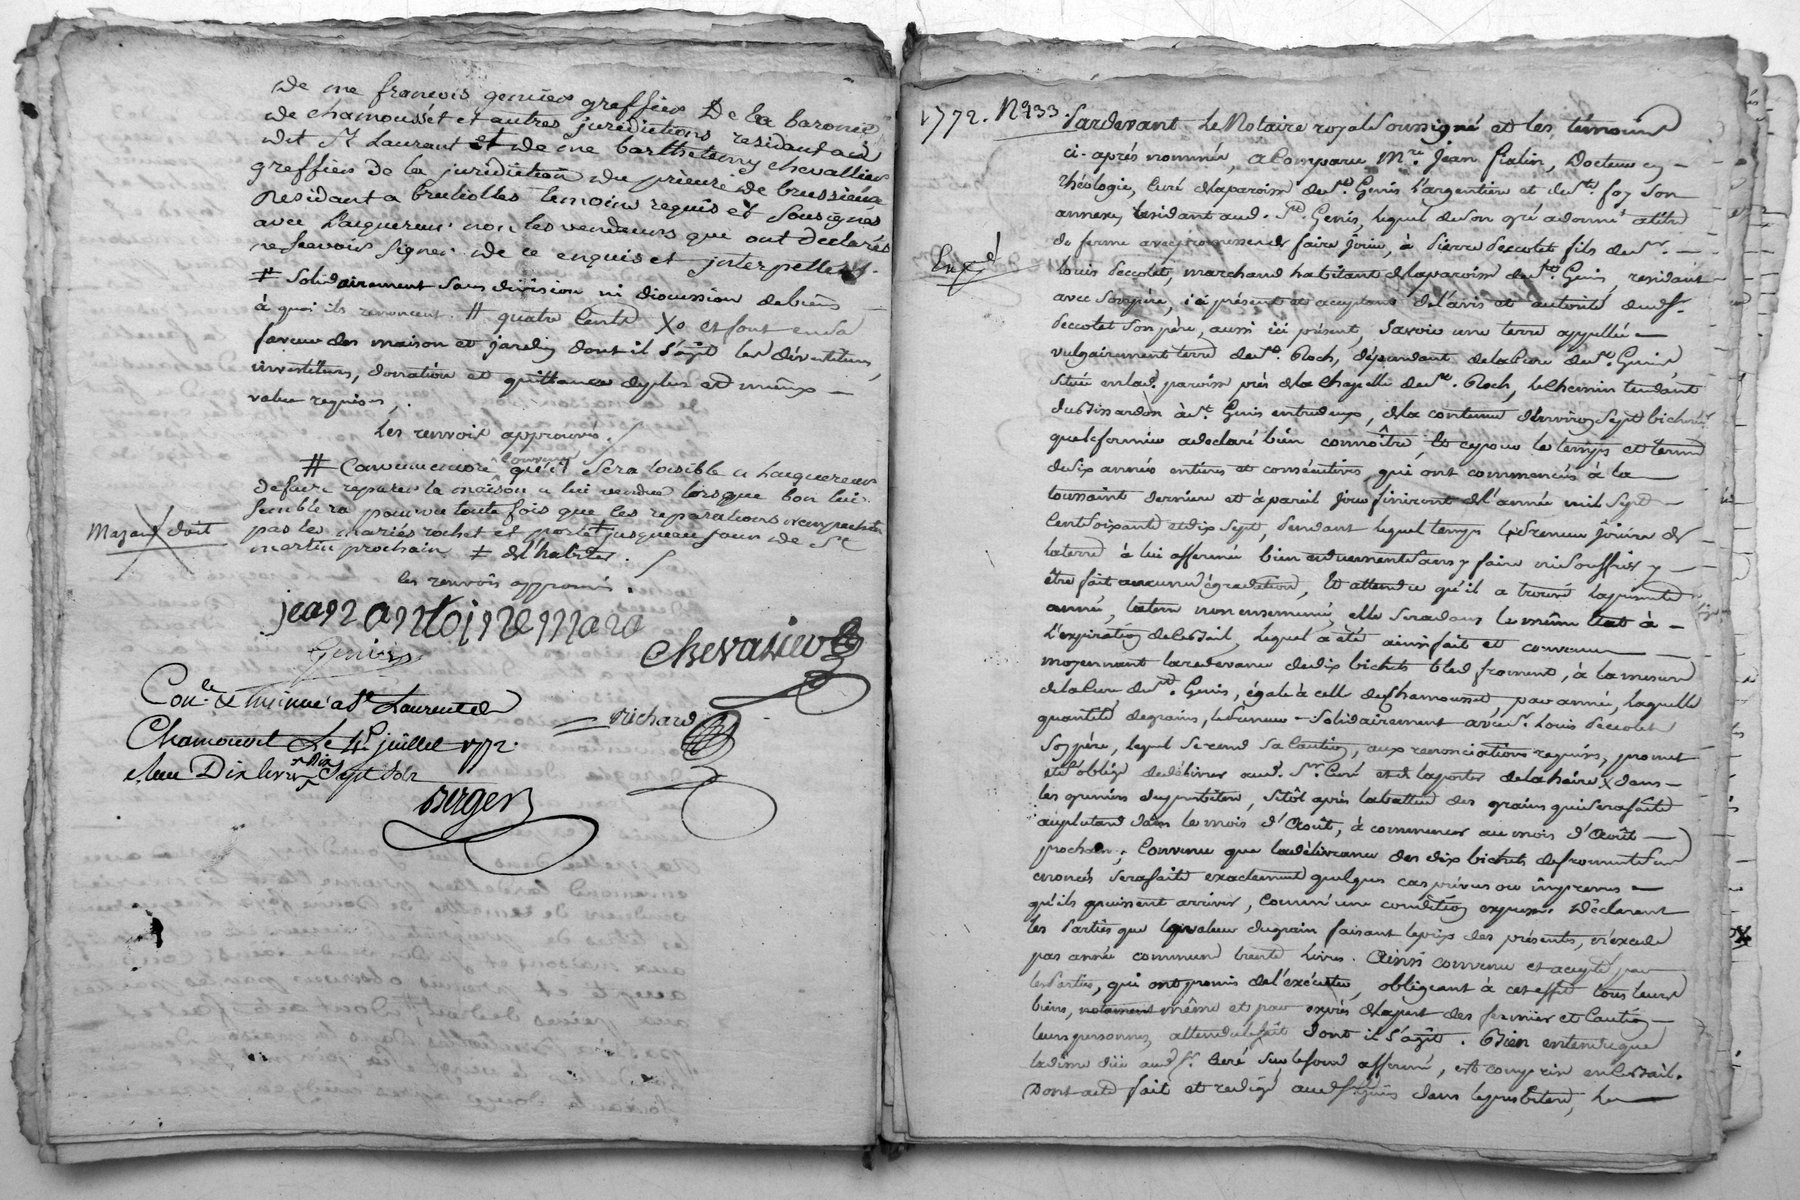 de me francois geniers greffier De la baronie
de chamousset et autres juridictions residant au
dit St Laurent et de me barthelemy chevallier
greffier de la juridiction du prieuré de brussieux
Residant a brullioles temoins requis et sousignes
avec l'aquereur non les vendeurs qui ont declarés
ne scavoir signer de ce enquis et interpellés.
# Solidairement sans division ni discussion de biens
à quoi ils renoncent # quatre cents Xo et font en sa
faveur des maison et jardin dont il s'agit les dévestitures,
investitures, donation et quittance de plus et mieux
value requises,.
les renvois approuvés./
# Convenu encore convenu qu'il sera loisible a l'acquereur
de faire reparer la maison a lui vendue lorsque bon lui
semblera pourvu toute fois que les reparations n'empechent
pas les mariés rochet et jusqueau jour de St
martin prochain # d'l'habiter./
Mazard doit
les renvois approuvés.
jean antoine mara
Geniers
Chevalier
Con.le & minué a St Laurent de
Chamousset Le 4e juillet 1772.
Richard
Dix livres Dix Sept sols
Berger
1772. No 133.
Pardevant Le Notaire royal soussigné et les témoins
ci-après nommés, a comparu Mre Jean flatin, Docteur en
théologie, Curé de la paroisse de St Genis l'argentiere et de Ste foy son
annexe, résidant aud. St Genis, lequel de son gré a donné à titre
de ferme avec promesse de faire jouir, à Pierre Peccolet fils de Sr
Louis Peccolet, marchand habitant de la paroisse de St Genis, residant
Exp.é
avec son père, ici présent et acceptant de l'avis et autorité dud. Sr.
Peccolet son père, aussi ici présent, Savoir une terre appellée
vulgairement terre de St. Roch, dépendant de la Cure de St Genis
située en lad. paroisse près de la Chapelle de St. Roch, le Chemin tendant
du Bissardon à St Genis entre deux, de la contenue d'environ Sept bicherées
que le fermier a déclaré bien connoître, Et ce pour le temps et terme
de Six années entières et consécutives, qui ont commencés à la
toussaint derniere et à pareil jour finiront de l'année mil Sept
Cent Soixante et dix Sept, Pendant lequel temps le Preneur jouira de
la terre à lui affermée bien et duement Sans y faire ni Souffrir y
être fait aucune dégradation, Et attendu qu'il a trouvé la présente
année, la terre non ensemencée, elle sera dans le même état à
l'expiration de ce Bail, lequel a été ainsi fait et convenu
moyennant la redevance de dix bichets bled froment, à la mesure
de la Cure de St. Genis, égale à celle de Chamousset, par année, laquelle
quantité de grains, le Preneur Solidairement avec Sr. Louis Peccolet
Son père, lequel Se rend Sa Caution, aux renonciations requises, promet
et s'oblige de délivrer aud. Sr Curé et de la porter de la haire X dans
les greniers du presbitere, Sitôt après la battue des grains qui Sera faite
au plutard dans le mois d'Août, à commencer au mois d'Août
prochain; Convenu que la délivrance des dix bichets de froment Sus
énoncés Sera faite exactement quelques cas prévus ou imprévus
qu'ils puissent arriver, Comme une condition expresse. Déclarent
les Parties que la valeur du grain faisant le prix des présentes, n'excede
pas année commune trente Livres. Ainsi convenu et accepté par
les Parties, qui ont promis de l'exécuter, obligeant à cet effet tous leurs
biens, notament même et par exprès de la part des fermier et Caution
leurs personnes, attendu le fait dont il s'agit. Bien entendu que
la dime düe aud Sr. Curé Sur le fond affermé, est comprise en ce Bail.
Dont acte fait et redigé aud St Genis dans le presbitere, Le